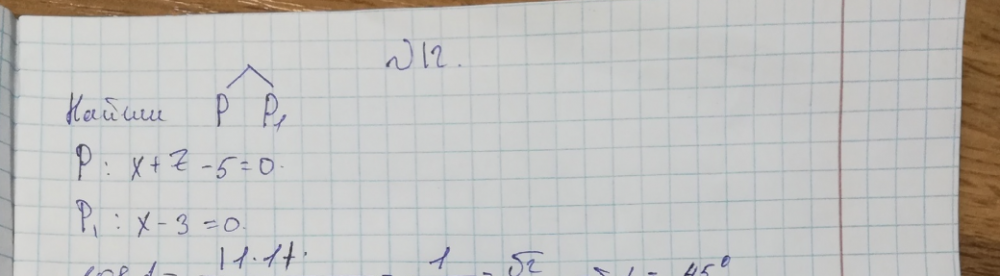 №12.
Найти P P₁
P: x+z-5=0.
P₁: x-3=0.
|1·1+· 1 √2 45°